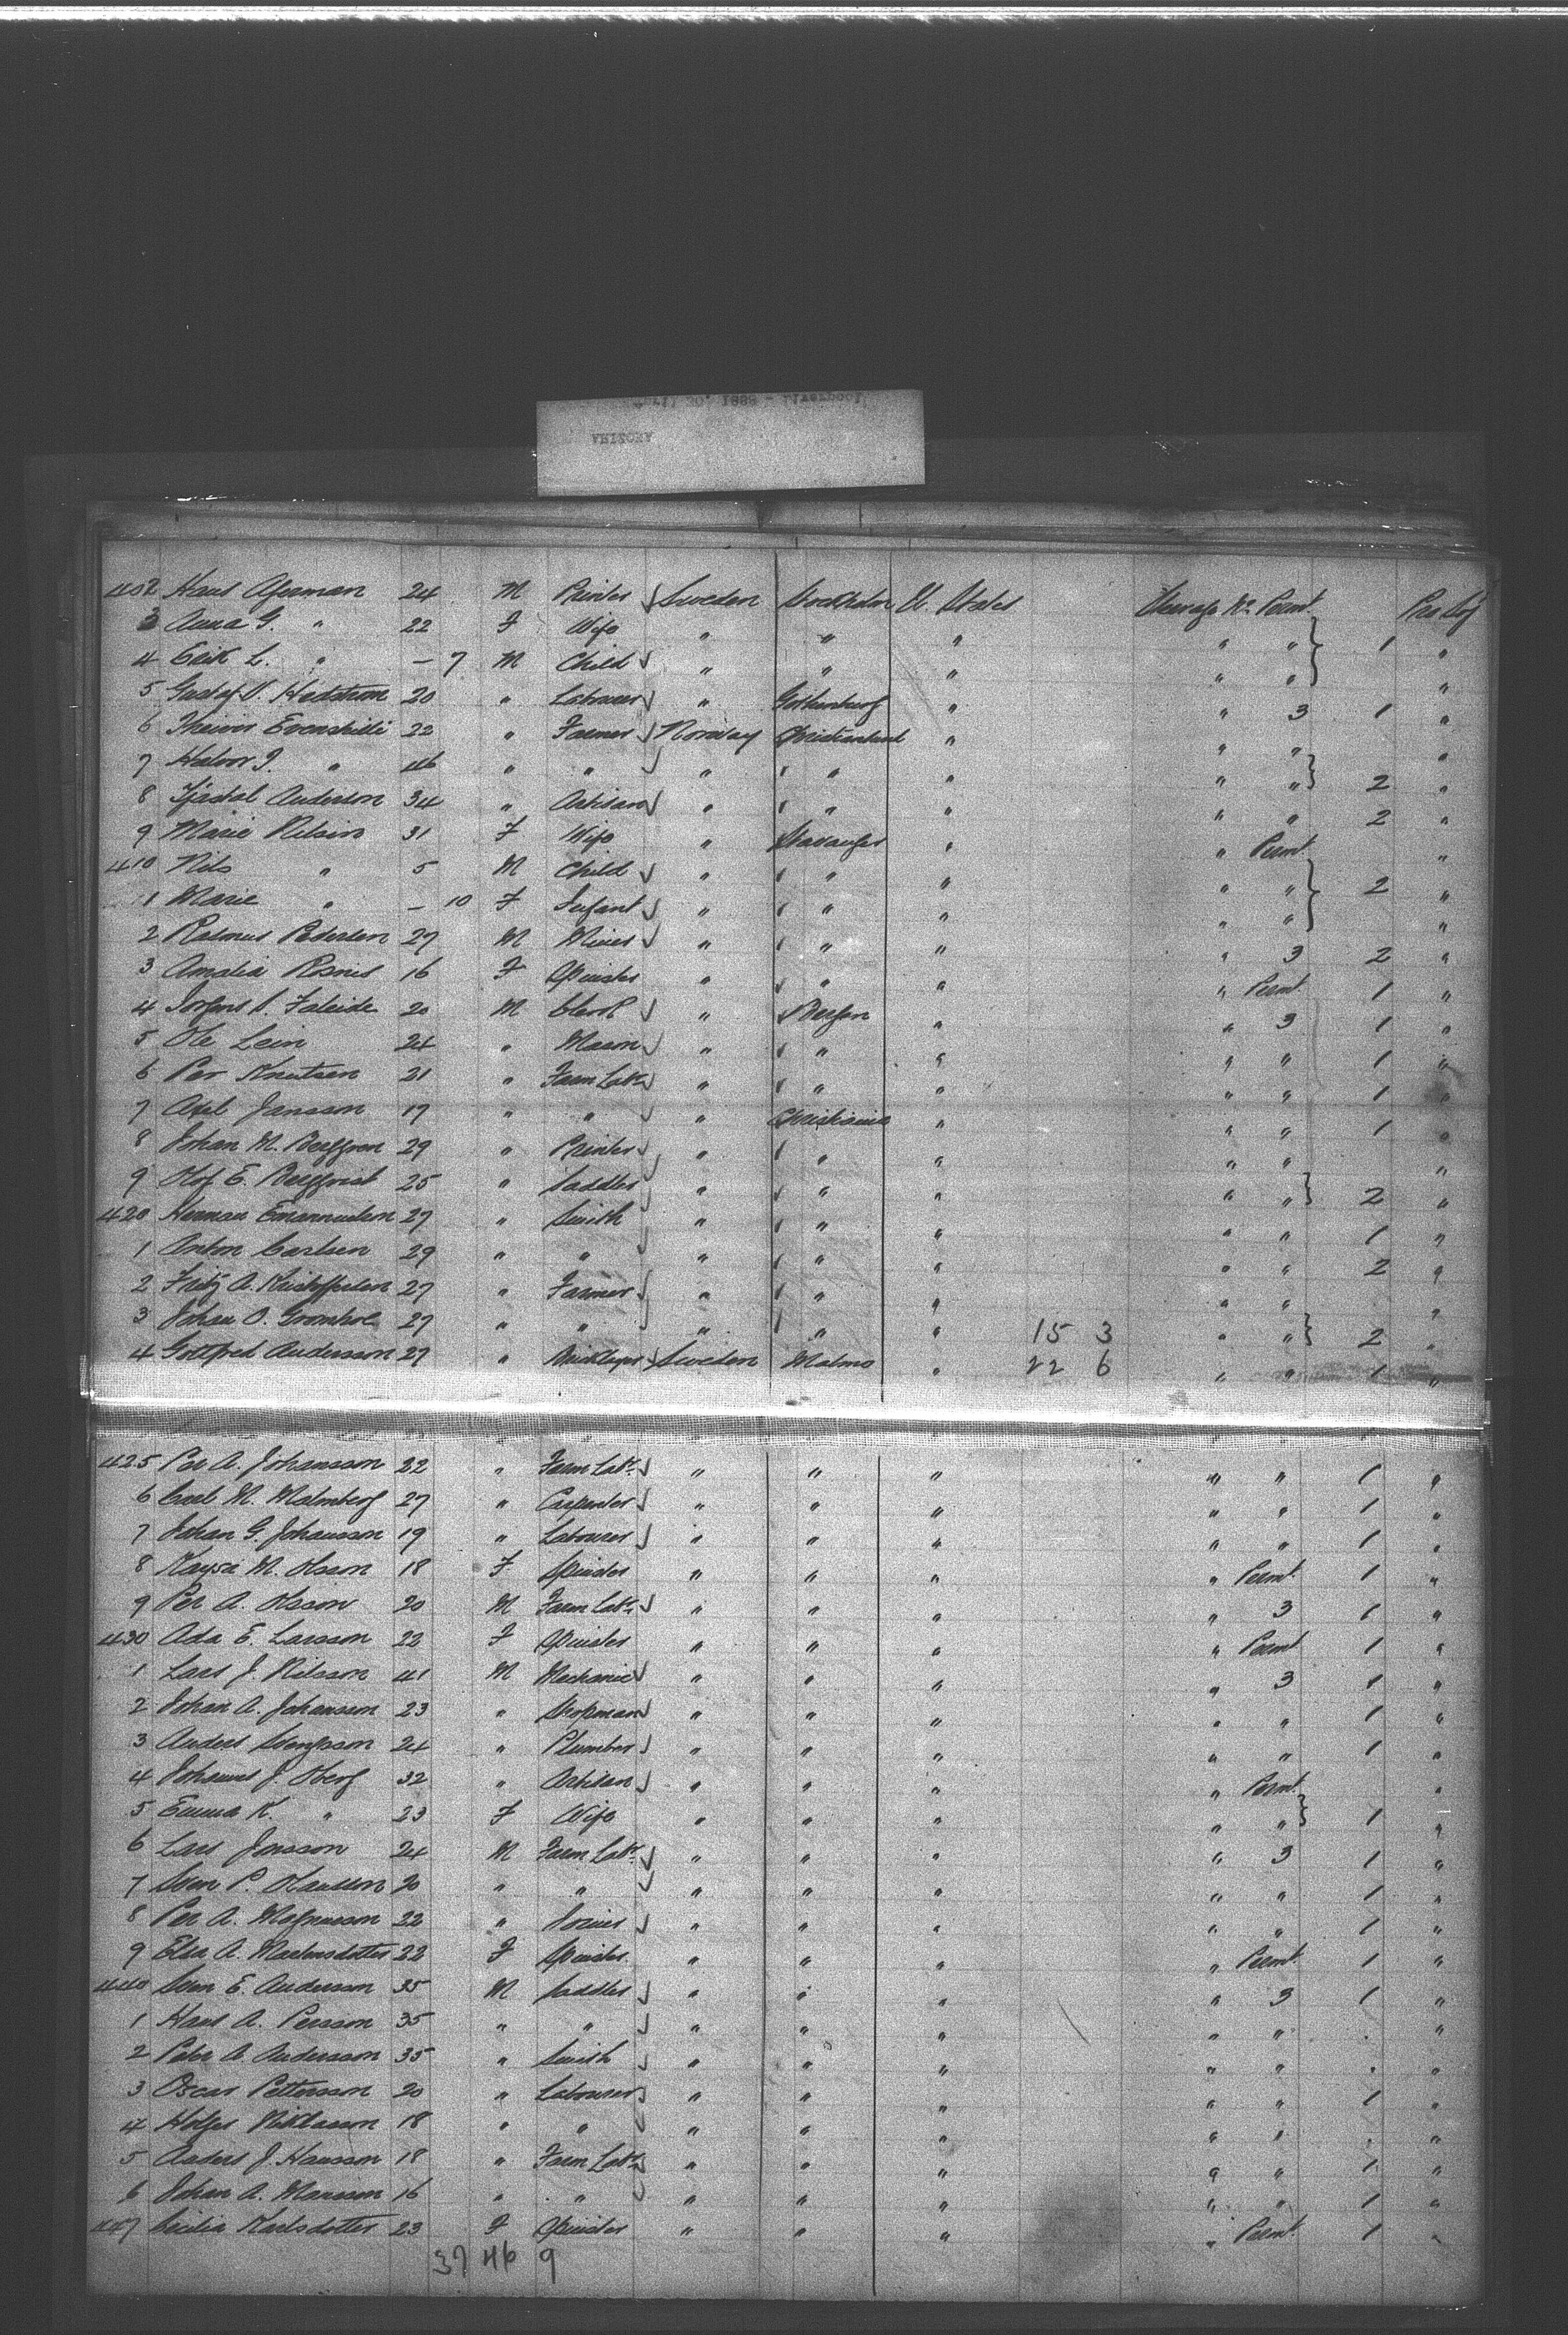 April 30, 1888 - Liverpool
ARIZONA
402 Hans Ageman 24 M Printer Sweden Stockholm U. States Steerage No. Permt. Pro Log
3 Anna G. " 22 F Wife " " " " " 1 "
4 Erik L. " - 7 M Child " " " " " "
5 Gustaf V. Hedstrom 20 " Labourer " Gothenburg " " 3 1 "
6 Evenshilli 22 " Farmer Norway Christiansund " " " "
7 Halvor J. " 46 " " " " " " " 2 "
8 Anderson 34 " Artisan " " " " " 2 "
9 Marie Nilsin 31 F Wife " Stavanger " " Permt. "
410 Nils " 5 M Child " " " " " 2 "
1 Marie " - 10 F Infant " " " " " "
2 Rasmus Pedersen 27 M Miner " " " " 3 2 "
3 Amalia 16 F Spinster " " " " Permt. 1 "
4 Faleide 20 M Clerk " Bergen " " 3 1 "
5 Ole Lein 24 " Mason " " " " " 1 "
6 Per Knutsen 21 " Farm Labr " " " " " 1 "
7 Axel Jansson 17 " " " Christiania " " " 1 "
8 Johan M. Berggren 29 " Printer " " " " " "
9 Olof E. Bergqvist 25 " Saddler " " " " " 2 "
420 Herman Emanuelsen 27 " Smith " " " " " 1 "
1 Anton Carlsen 29 " " " " " " " 2 "
2 Fritz A. Kristoffersen 27 " Farmer " " " " " "
3 Johan O. Gromhol 27 " " " " " 15 3 " " 2 "
4 Gottfred Andersson 27 " Bricklayer Sweden Malmo " 22 6 " " 1 "
425 Per A. Johansson 22 " Farm Labr. " " " " " 1 "
6 Carl M. Malmberg 27 " Carpenter " " " " " 1 "
7 Johan G. Johansson 19 " Labourer " " " " " 1 "
8 Kaysa M. Olsson 18 F Spinster " " " " Permt. 1 "
9 Per A. Olsson 20 M Farm Labr. " " " " 3 1 "
430 Ada E. Larsson 22 F Spinster " " " " Permt. 1 "
1 Lars J. Nilsson 41 M Mechanic " " " " 3 1 "
2 Johan A. Johansson 23 " Shopman " " " " " 1 "
3 Anders Svensson 24 " Plumber " " " " " 1 "
4 Johannes J. Oberg 32 " Artisan " " " " Permt. "
5 Emma K. " 23 F Wife " " " " " 1 "
6 Lars Jonsson 24 M Farm Labr. " " " " 3 1 "
7 Sven P. Klausson 20 " " " " " " " 1 "
8 Per A. Magnusson 22 " Joiner " " " " " 1 "
9 Elsa A. Martensdotter 22 F Spinster " " " " Permt. 1 "
440 Sven E. Andersson 35 M Saddler " " " " 3 1 "
1 Hans A. Persson 35 " " " " " " " . "
2 Peter A. Andersson 35 " Smith " " " " " . "
3 Oscar Pettersson 20 " Labourer " " " " " 1 "
4 Holger Niklasson 18 " " " " " " " . "
5 Anders J. Hansson 18 " Farm Labr. " " " " " 1 "
6 Johan A. Mansson 16 " " " " " " " 1 "
447 Cecilia Karlsdotter 23 F Spinster " " " " Permt. 1 "
37 46 9